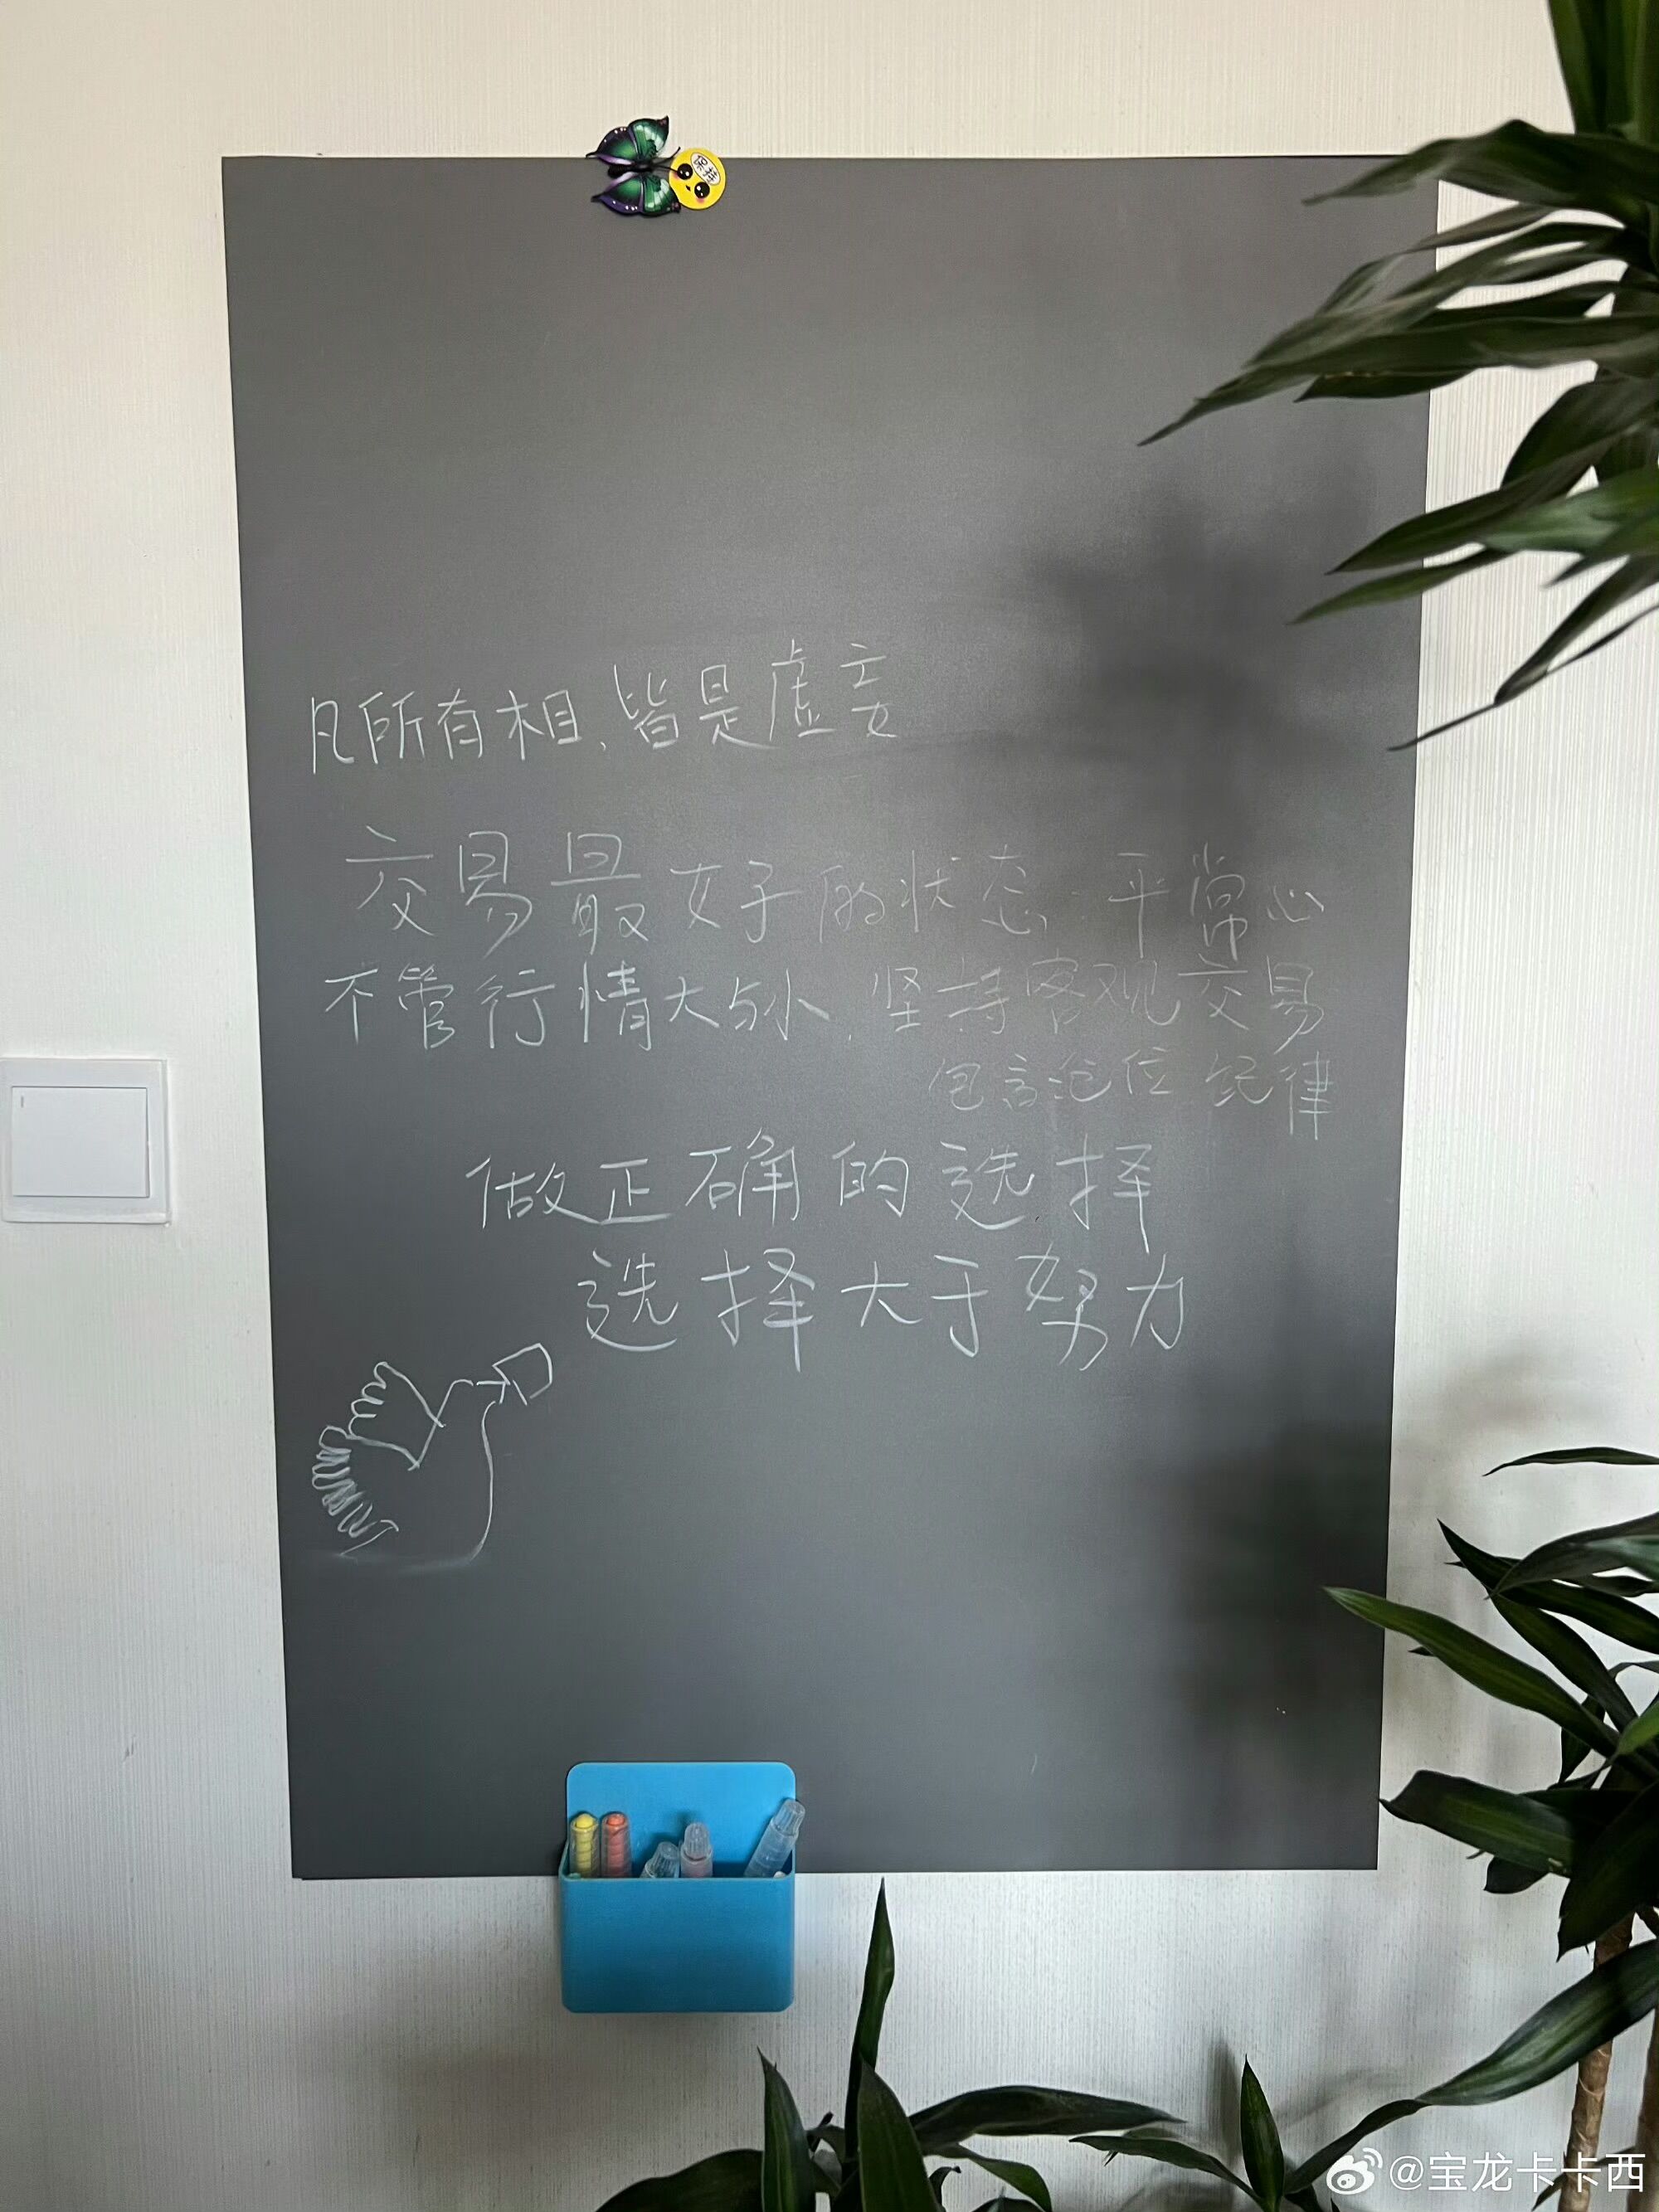 凡所有相，皆是虚妄
交易最好的状态：平常心
不管行情大与小，坚持客观交易
包含仓位 纪律
做正确的选择
选择大于努力
@宝龙卡卡西